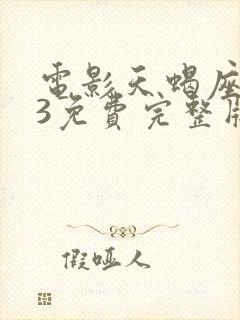 電影天蝎座
3免費完整版
假啞人